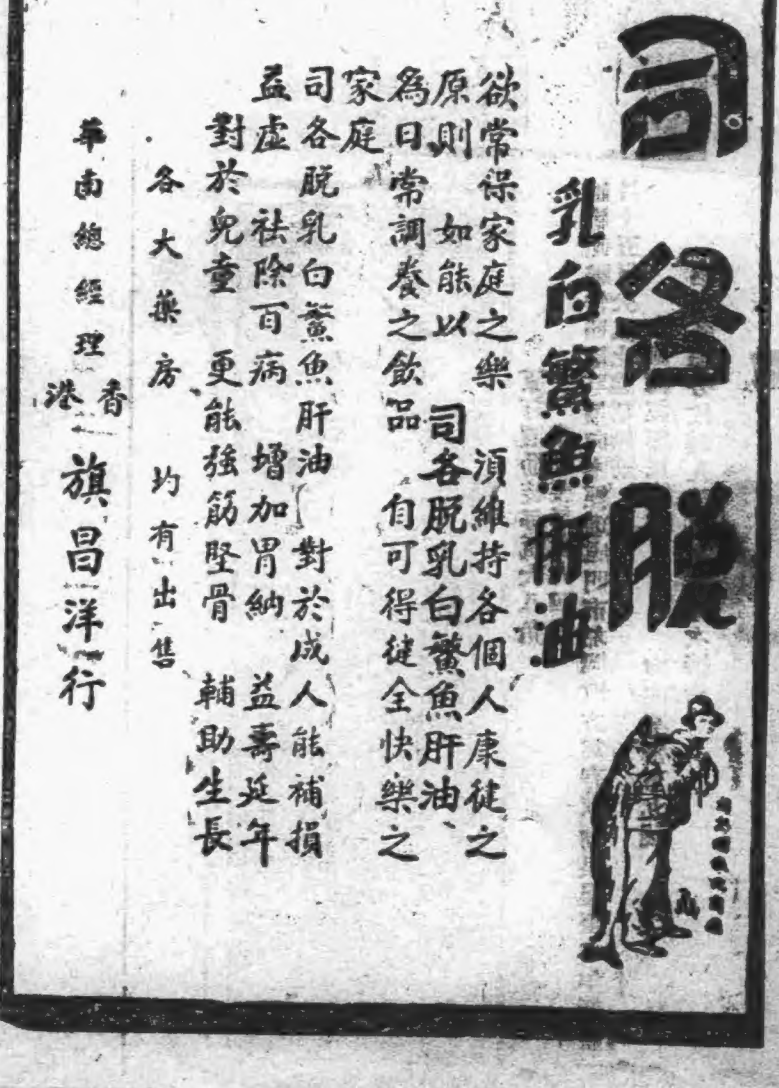 司各脱
乳白鱉魚肝油
欲常保家庭之樂 須維持各個人康健之
原則 如能以 司各脱乳白鱉魚肝油、
為日常調養之飲品 自可得健全快樂之
家庭
司各脱乳白鱉魚肝油 對於成人能補損
益虛 祛除百病 增加胃納 益壽延年
對於兒童 更能強筋堅骨 輔助生長
各大藥房 均有出售
華南總經理
香港 旗昌洋行